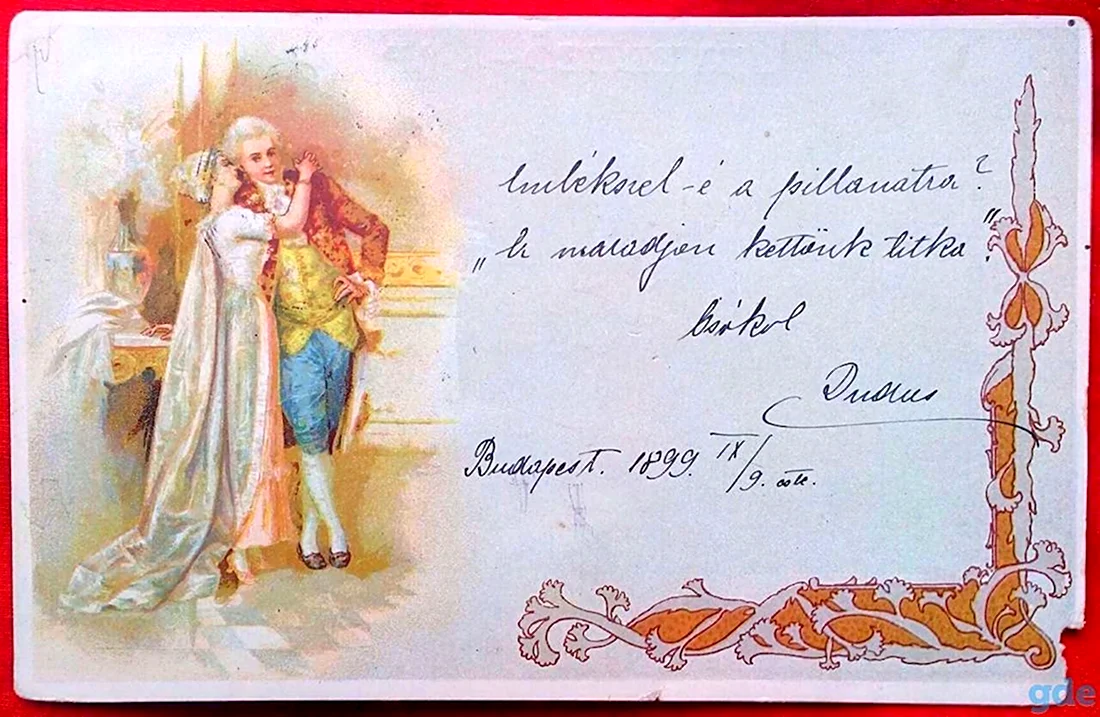 Emlékszel-é a pillanatra?
„Ez maradjon kettőnk titka"
Csókol
Dudus
Budapest. 1899. IX/9. este.
gde